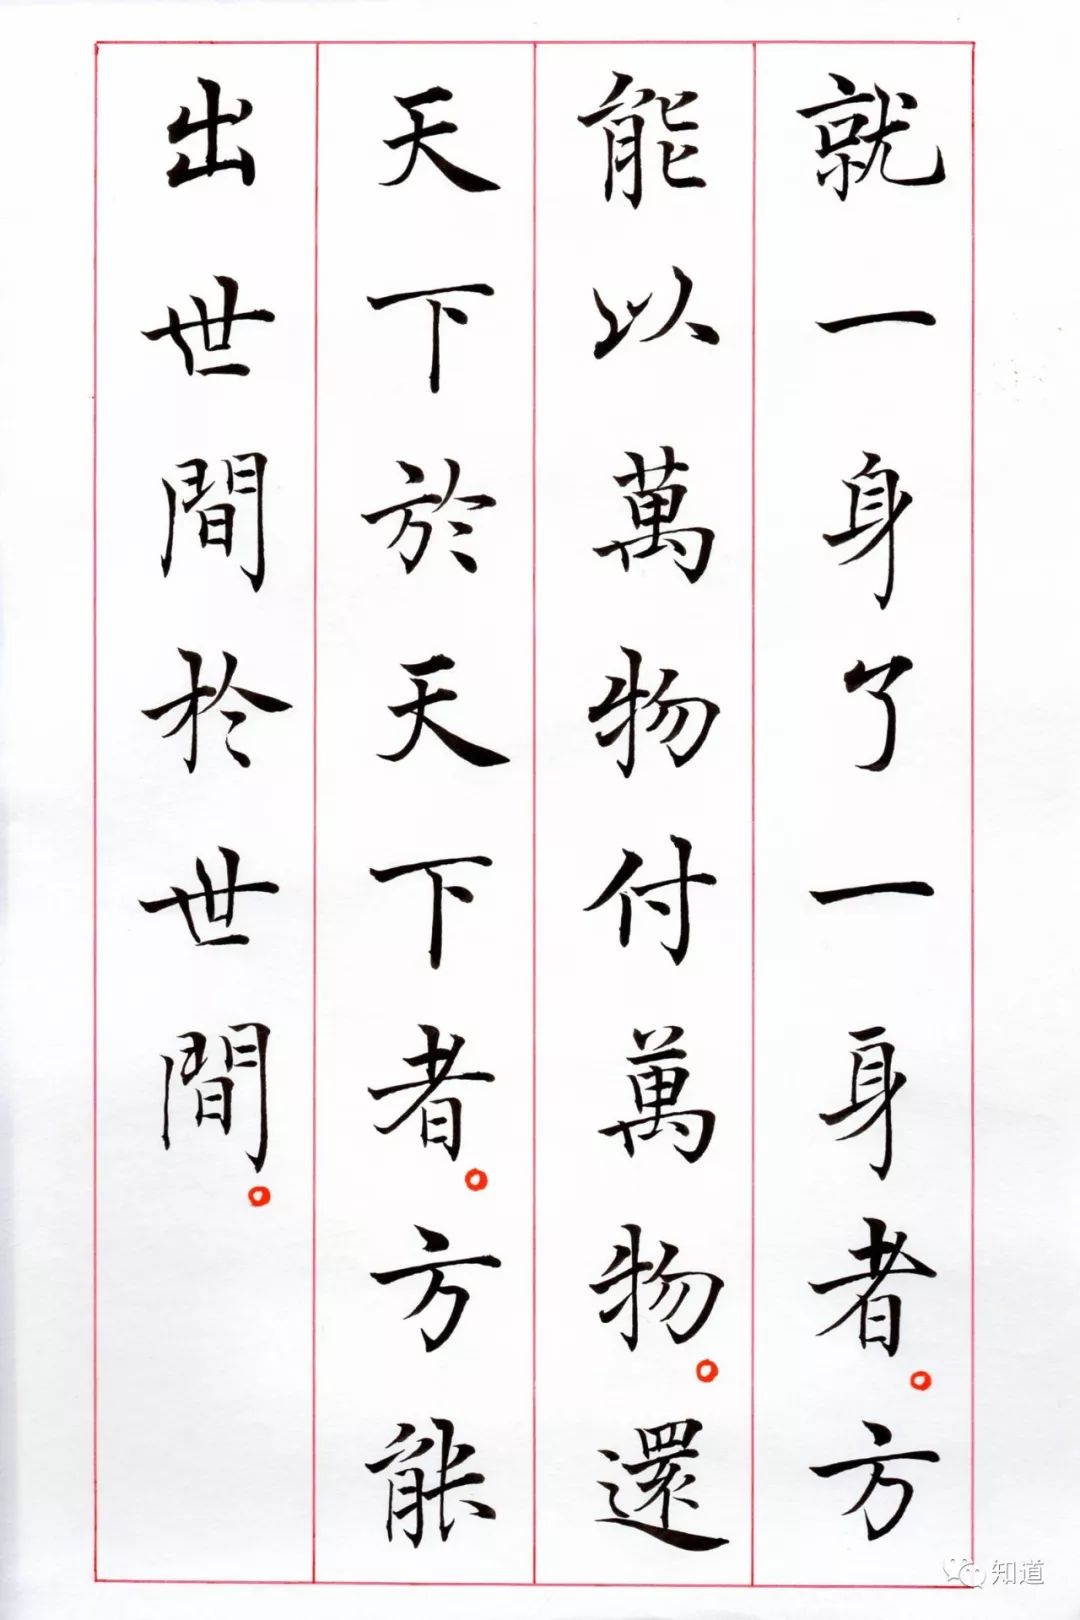 就一身了一身者。方
能以萬物付萬物。還
天下於天下者。方能
出世間於世間。
知道